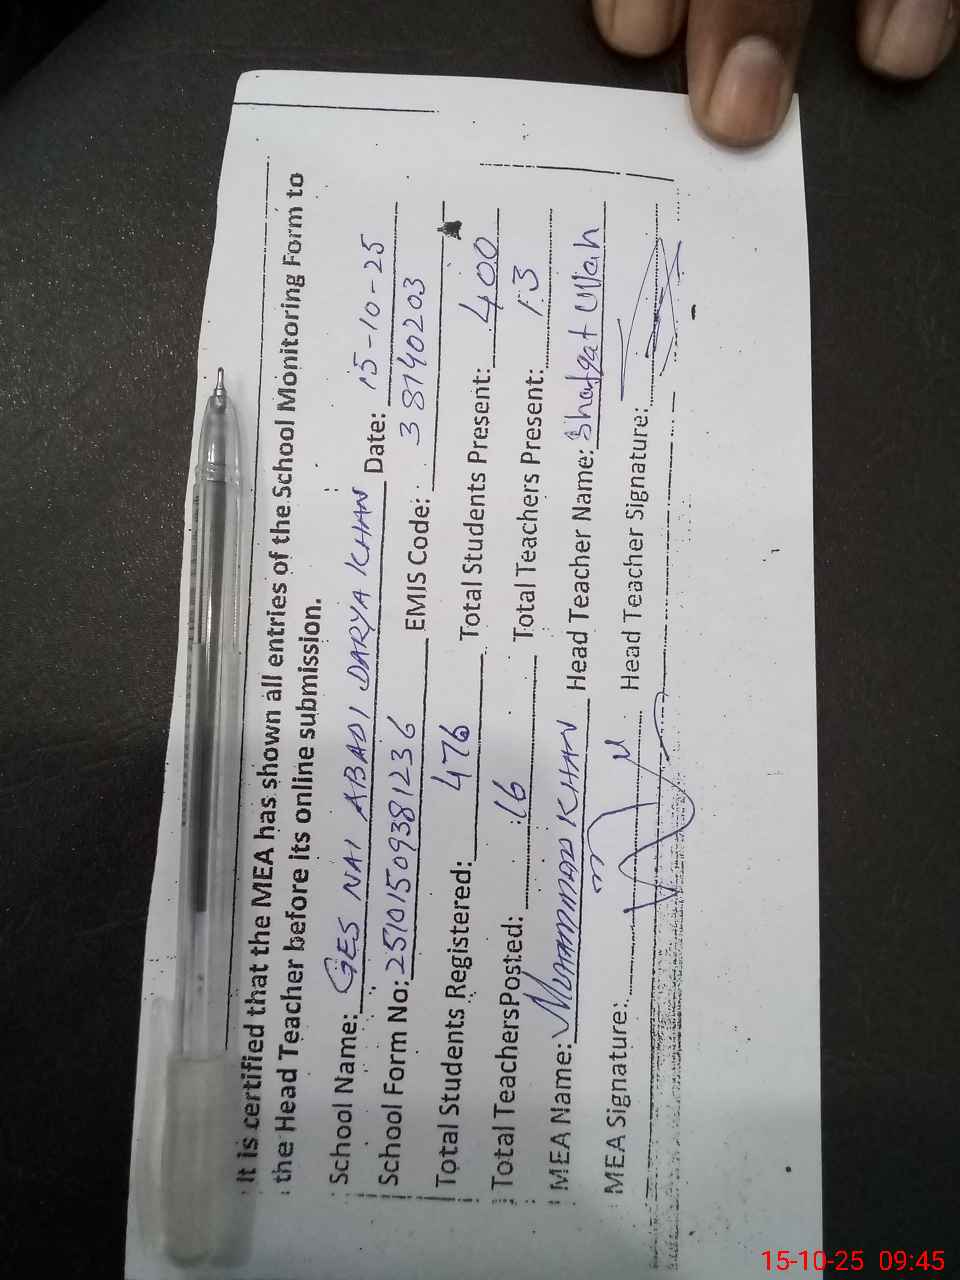 It is certified that the MEA has shown all entries of the School Monitoring Form to
the Head Teacher before its online submission.
School Name: GES NAI ABADI DARYA KHAN Date: 15-10-25
School Form No: 25101509381236 EMIS Code: 38140203
Total Students Registered: 476 Total Students Present: 400
Total TeachersPosted: 16 Total Teachers Present: 13
MEA Name: MUHAMMAD KHAN Head Teacher Name: Shafqat Ullah
MEA Signature: Head Teacher Signature:
15-10-25 09:45